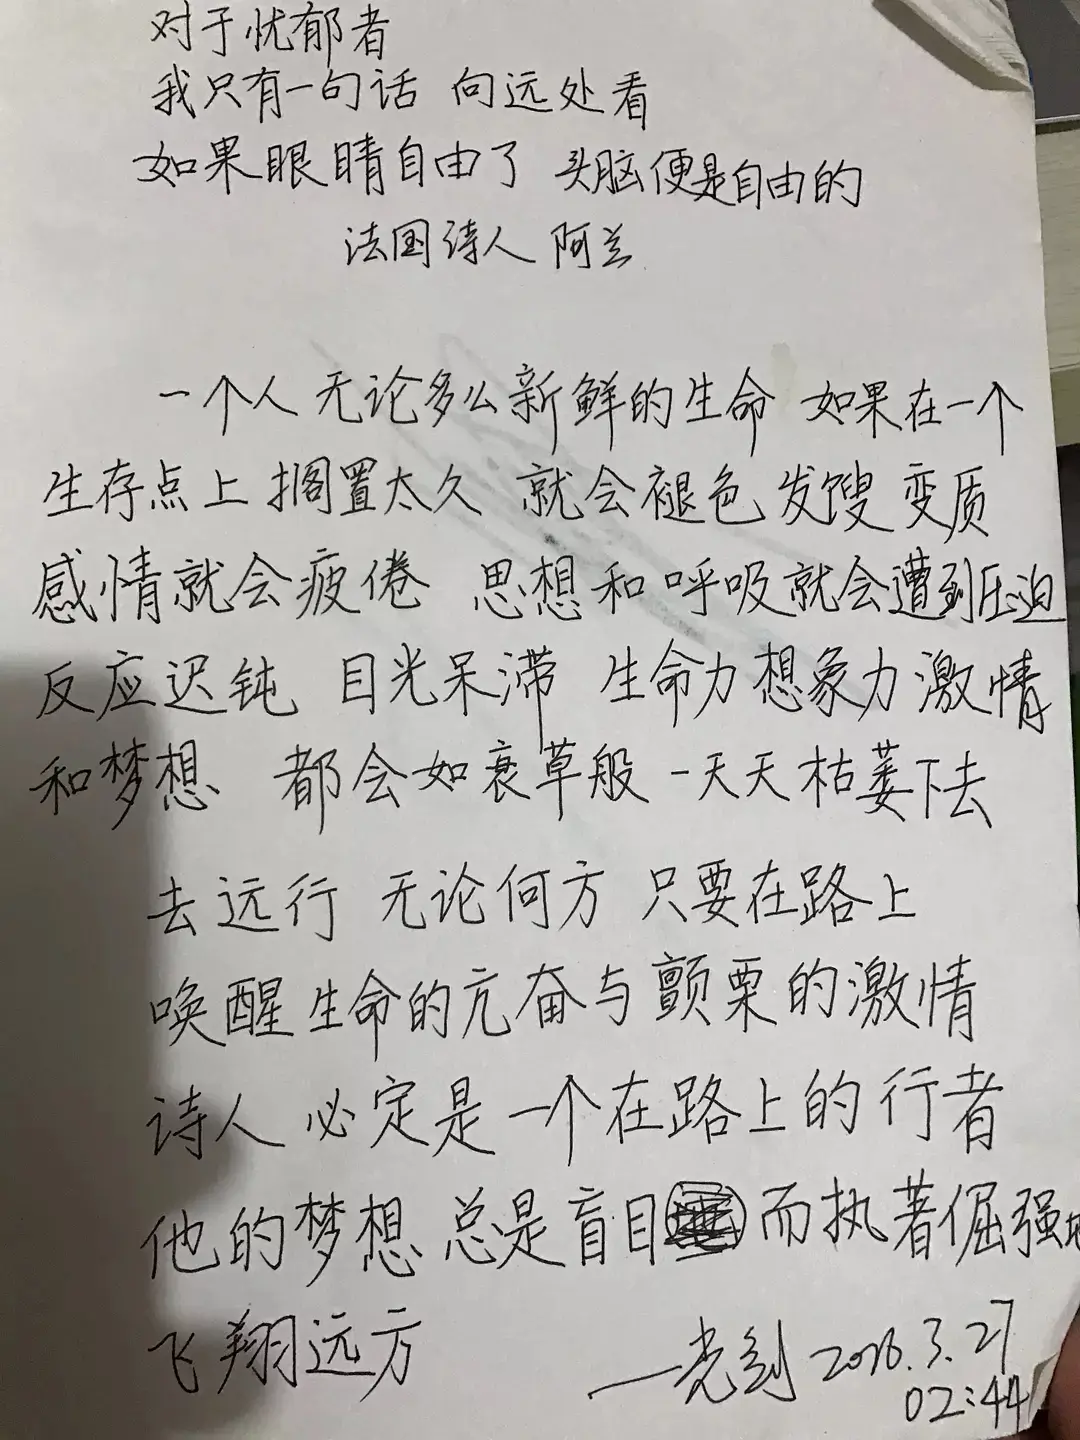 对于忧郁者
我只有一句话 向远处看
如果眼睛自由了 头脑便是自由的
法国诗人 阿兰
一个人无论多么新鲜的生命 如果在一个
生存点上搁置太久 就会褪色发馊变质
感情就会疲倦 思想和呼吸就会遭到压迫
反应迟钝 目光呆滞 生命力想象力激情
和梦想 都会如衰草般 一天天枯萎下去
去远行 无论何方 只要在路上
唤醒生命的亢奋与颤栗的激情
诗人 必定是一个在路上的行者
他的梦想 总是盲目而执著倔强地
飞翔远方
3.27
02:44